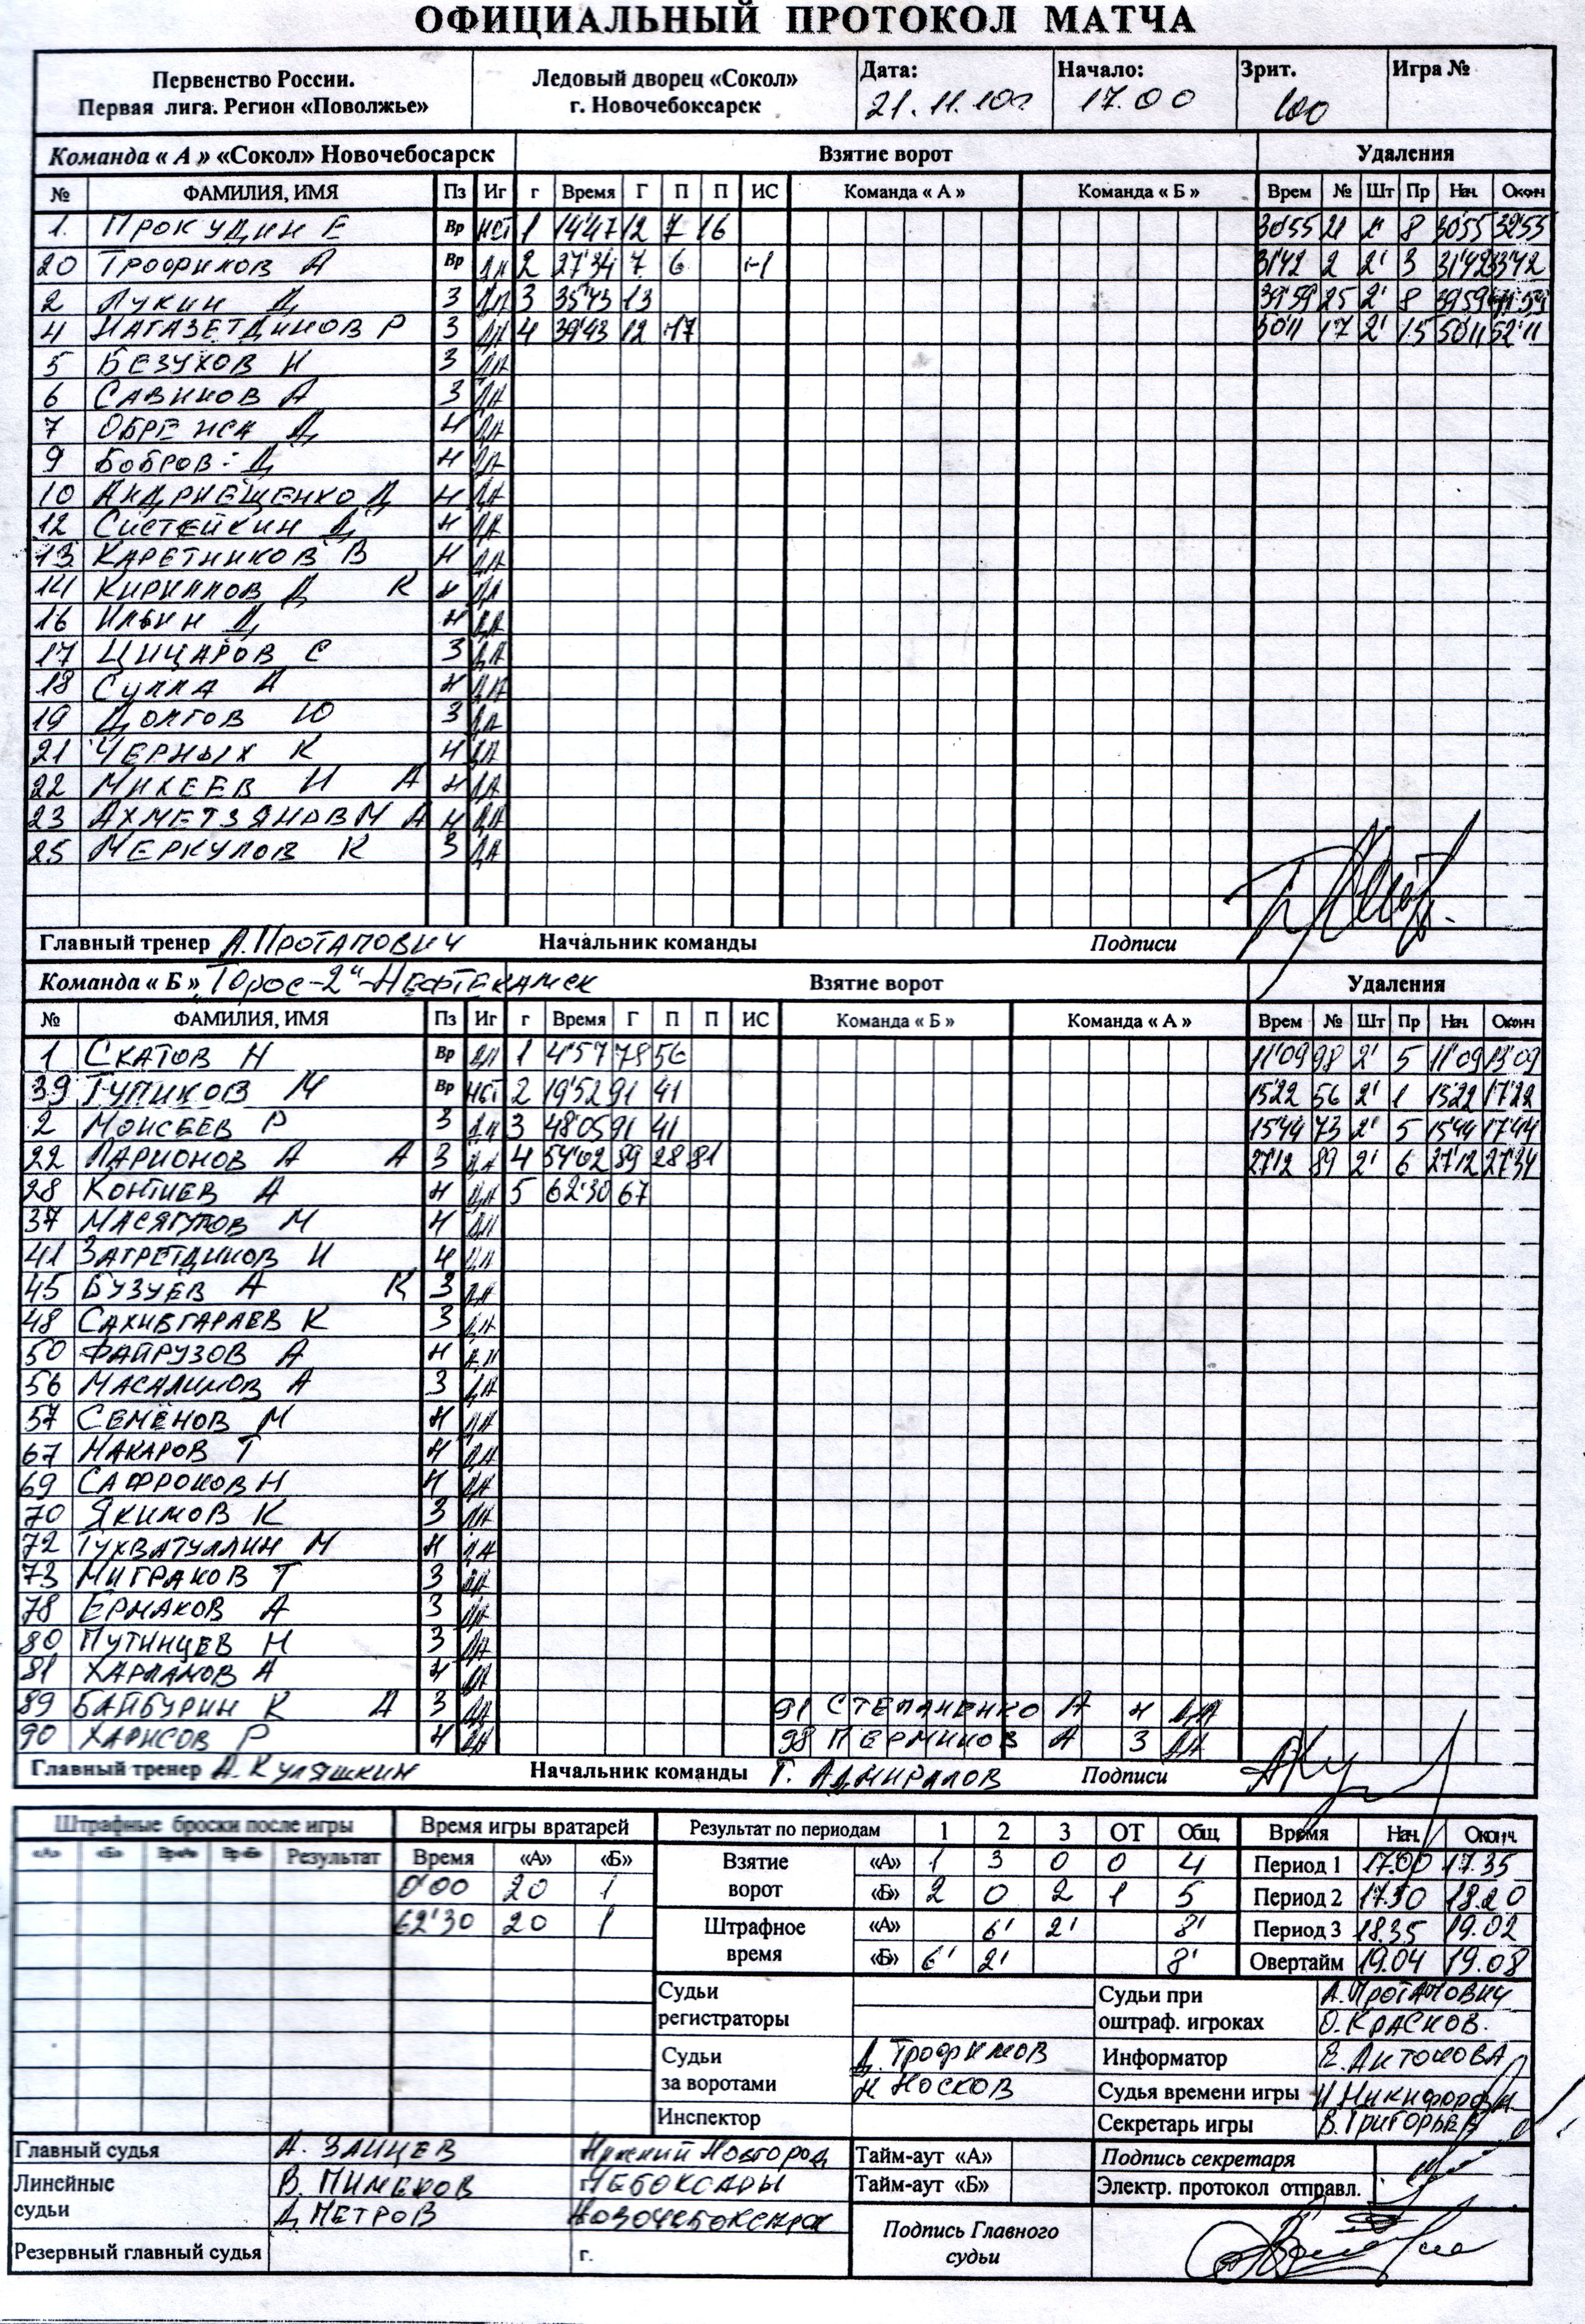 ОФИЦИАЛЬНЫЙ ПРОТОКОЛ МАТЧА
Первенство России. Первая лига. Регион «Поволжье»
Ледовый дворец «Сокол» г. Новочебоксарск
Дата: 21.11.10г
Начало: 17.00
Зрит. 100
Игра №
Команда « А » «Сокол» Новочебосарск Взятие ворот Удаления
№ ФАМИЛИЯ, ИМЯ Пз Иг г Время Г П П ИС Команда « А » Команда « Б » Врем № Шт Пр Нач. Оконч
1. ПРОКУДИН Е Вр НСТ 1 14'47 12 7 16 30'55 21 2' 8 30'55 32'55
20 ТРОФИМОВ А Вр ДА 2 27'34 7 6 +1 31'42 2 2' 3 31'42 33'42
2 ЛУКИН Д З ДА 3 35'43 13 39'59 25 2' 8 39'59 41'59
4 НАГАЗЕТДИНОВ Р З ДА 4 39'43 12 17 50'11 17 2' 15 50'11 52'11
5 БЕЗУХОВ Н З ДА
6 САВИНОВ А З ДА
7 ОБРЕ Д Н ДА
9 БОБРОВ Д Н ДА
10 АНДРИЕЩЕНКО Д Н ДА
12 СИСТЕЙКИН Д Н ДА
13 КАРЕТНИКОВ В Н ДА
14 КИРИЛЛОВ Д К Н ДА
16 ИЛЬИН Д Н ДА
17 ЦИЦАРОВ С З ДА
18 СУЛЛА А Н ДА
19 ДОЛГОВ Ю З ДА
21 ЧЕРНЫХ К Н ДА
22 МИХЕЕВ И А Н ДА
23 АХМЕТЗЯНОВ М А Н ДА
25 МЕРКУЛОВ К З ДА
Главный тренер А.ПРОТАПОВИЧ Начальник команды Подписи
Команда « Б » "Торос-2"-НЕФТЕКАМСК Взятие ворот Удаления
№ ФАМИЛИЯ, ИМЯ Пз Иг г Время Г П П ИС Команда « Б » Команда « А » Врем № Шт Пр Нач. Оконч
1 СКАТОВ Н Вр ДА 1 4'57 78 56 11'09 98 2' 5 11'09 13'09
39 ТУПИКОВ М Вр НСТ 2 19'52 91 41 15'22 56 2' 1 15'22 17'22
2 МОИСЕЕВ Р З ДА 3 48'05 91 41 15'44 73 2' 5 15'44 17'44
22 ЛАРИОНОВ А А З ДА 4 54'02 89 28 81 27'12 89 2' 6 27'12 27'34
28 КОНТИЕВ А Н ДА 5 62'30 67
37 МАСЯГУТОВ М Н ДА
41 ЗАГРЕТДИНОВ И Н ДА
45 БУЗУЕВ А К З ДА
48 САХИБГАРАЕВ К З ДА
50 ФАЙРУЗОВ А Н ДА
56 МАСАЛИМОВ А З ДА
57 СЕМЁНОВ М Н ДА
67 МАКАРОВ Т Н ДА
69 САФРОНОВ Н Н ДА
70 ЯКИМОВ К З ДА
72 ТУХВАТУЛЛИН М Н ДА
73 МИГРАНОВ Т З ДА
78 ЕРМАКОВ А З ДА
80 ПУТИНЦЕВ Н З ДА
81 ХАРЛАМОВ А Н ДА
89 БАЙБУРИН К А З ДА 91 СТЕПАНЕНКО А Н ДА
90 ХАРИСОВ Р Н ДА 98 ПЕРМИНОВ А З ДА
Главный тренер А.КУЛЯШКИН Начальник команды Г. АДМИРАЛОВ Подписи
Штрафные броски после игры Время игры вратарей Результат по периодам 1 2 3 ОТ Общ Время Нач. Оконч.
«А» «Б» Вр«А» Вр«Б» Результат Время «А» «Б» Взятие ворот «А» 1 3 0 0 4 Период 1 17.00 17.35
0'00 20 1 «Б» 2 0 2 1 5 Период 2 17.50 18.20
62'30 20 1 Штрафное время «А» 6' 2' 8' Период 3 18.35 19.02
«Б» 6' 2' 8' Овертайм 19.04 19.08
Судьи регистраторы
Судьи при оштраф. игроках А.ПРОТАПОВИЧ О.КРАСНОВ.
Судьи за воротами Д.ТРОФИМОВ Н НОСКОВ
Информатор Е.АНТОНОВА
Судья времени игры И НИКИФОРОВА
Инспектор
Секретарь игры В.ГРИГОРЬЕВ
Главный судья А. ЗАЙЦЕВ Нижний Новгород
Линейные судьи В. ПИМЕНОВ г.ЧЕБОКСАРЫ
Д ПЕТРОВ НОВОЧЕБОКСАРСК
Резервный главный судья г.
Тайм-аут «А»
Тайм-аут «Б»
Подпись секретаря
Электр. протокол отправл.
Подпись Главного судьи